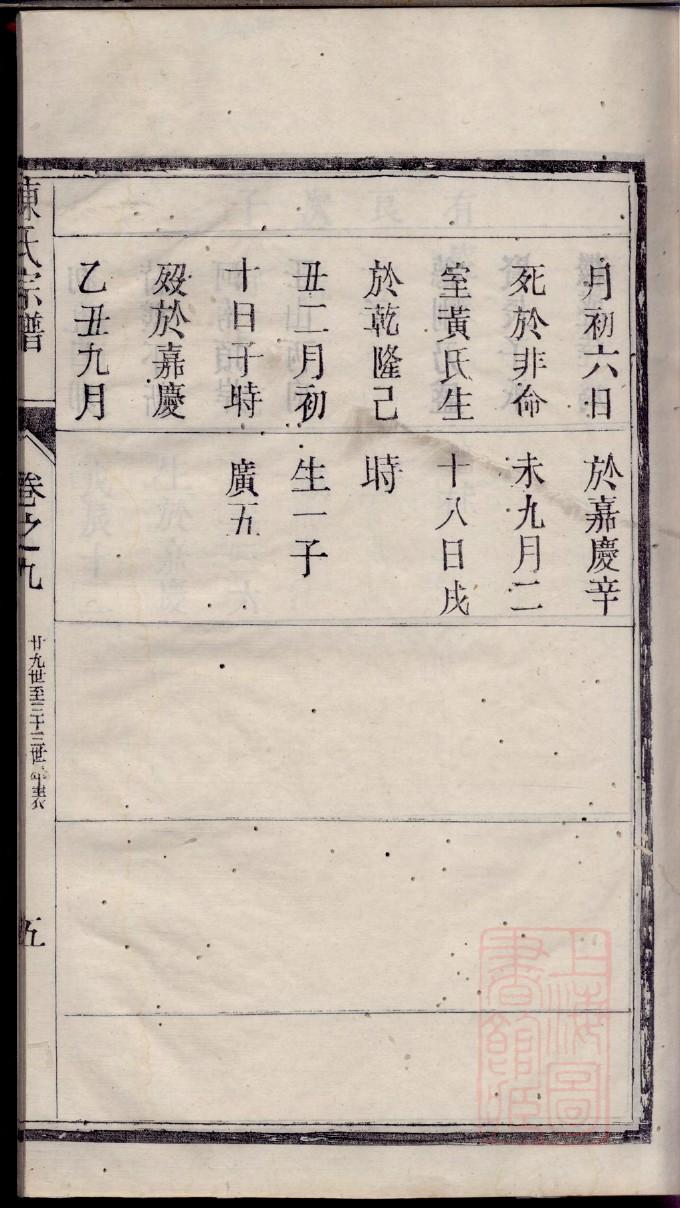 月初六日
死於非命
室黃氏生
於乾隆己
丑二月初
十日子時
歿於嘉慶
乙丑九月
於嘉慶辛
未九月二
十八日戌
時
生一子
廣五
陳氏宗譜
卷之九
廿九世至三十三世年表
五
上海圖書館藏